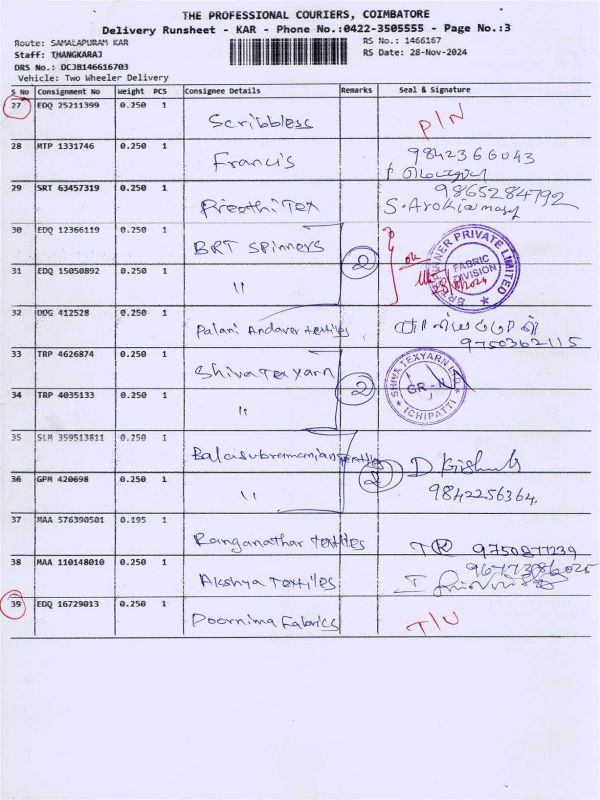 THE PROFESSIONAL COURIERS, COIMBATORE
Delivery Runsheet - KAR - Phone No.:0422-3505555 - Page No.:3
Route: SAMALAPURAM KAR
RS No.: 1466167
Staff: THANGKARAJ
RS Date: 28-Nov-2024
DRS No.: DCJB146616703
Vehicle: Two Wheeler Delivery
S No Consignment No Weight PCS Consignee Details Remarks Seal & Signature
27 EDQ 25211399 0.250 1 Scribbless P/N
28 MTP 1331746 0.250 1 Francis 9842366043
29 SRT 63457319 0.250 1 Preethi Tex 9865284792
30 EDQ 12366119 0.250 1 BRT Spinners
2
SPINNER PRIVATE LIMITED
FABRIC DIVISION
31 EDQ 15050892 0.250 1 "
32 DDG 412528 0.250 1 Palani Andaver textiles
9750362115
33 TRP 4626874 0.250 1 Shiva Texyarn
2
SHIVA TEXYARN LTD
GR - N
ICHIPATTI
34 TRP 4035133 0.250 1 "
35 SLM 359513811 0.250 1 Balasubramanian textiles
2
36 GPM 420698 0.250 1 " 9842256364
37 MAA 576390501 0.195 1 Ranganathar textiles 9750877239
38 MAA 110148010 0.250 1 Akshya Textiles
39 EDQ 16729013 0.250 1 Poornima Fabrics T/U